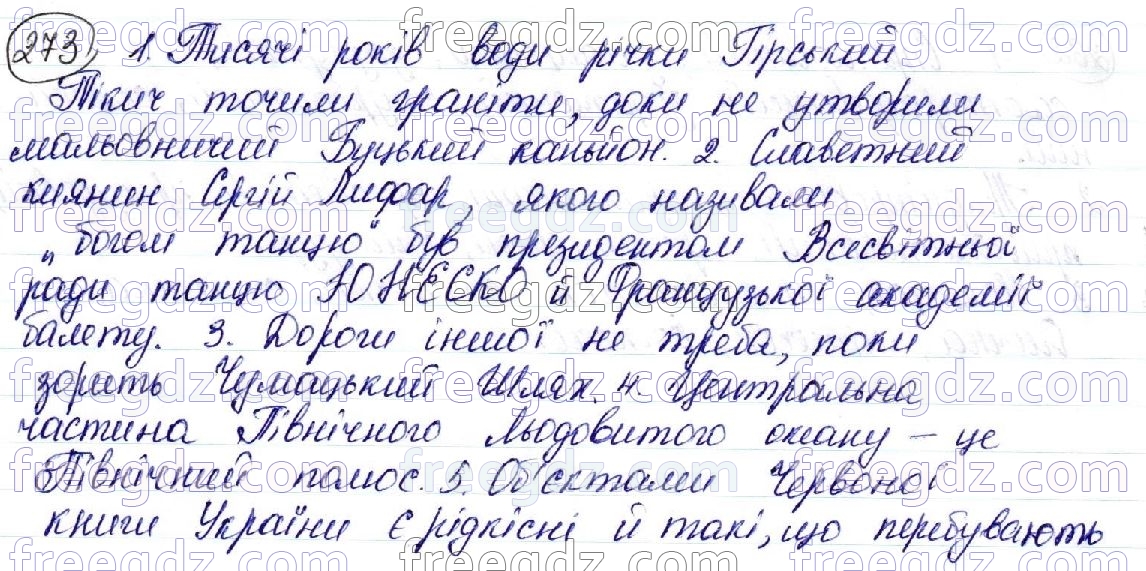 273. 1. Тисячі років води річки Гірський
Тікич точили граніти, доки не утворили
мальовничий Буцький каньйон. 2. Славетний
киянин Сергій Лифар, якого називали
„богом танцю" був президентом Всесвітньої
ради танцю ЮНЕСКО й Французької академії
балету. 3. Дороги іншої не треба, поки
зорить Чумацький Шлях. 4. Центральна
частина Північного Льодовитого океану – це
Північний полюс. 5. Об'єктами Червоної
книги України є рідкісні й такі, що перебувають
freegdz.com